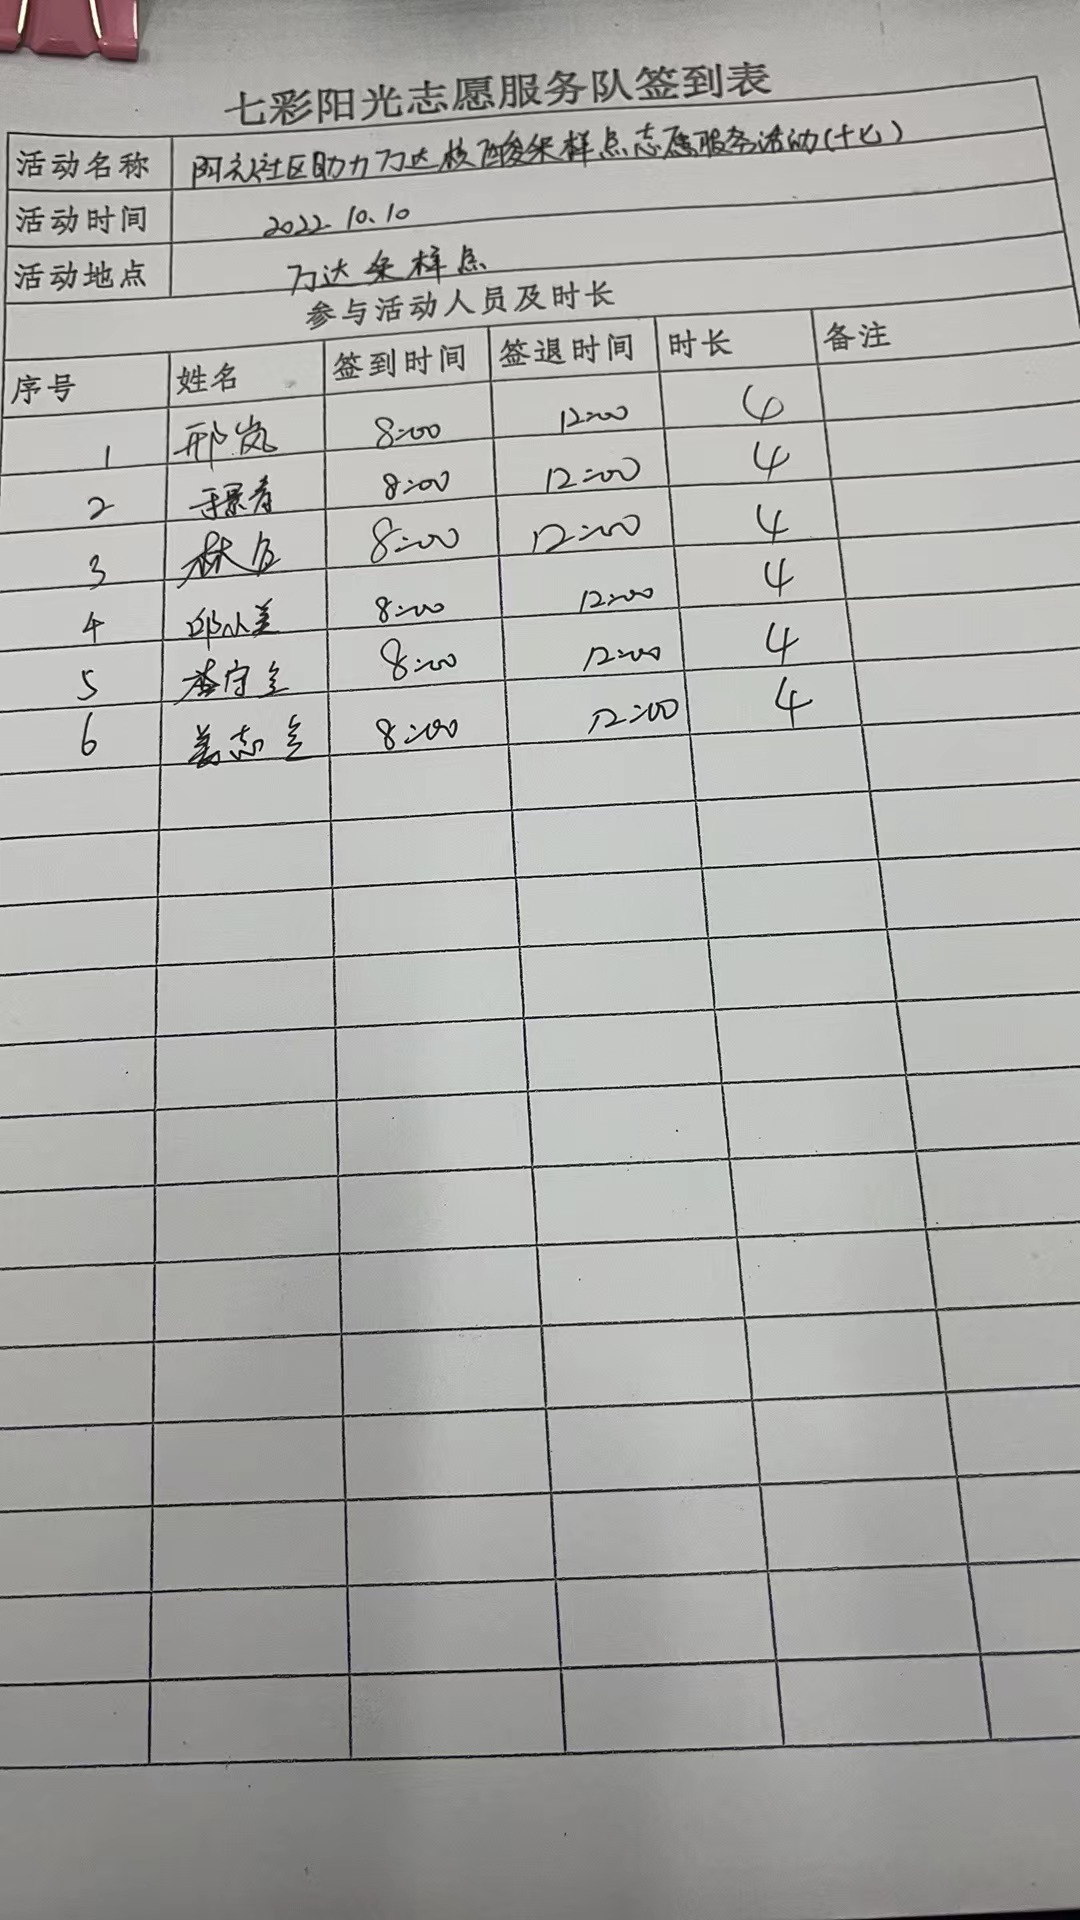 七彩阳光志愿服务队签到表
活动名称 社区助力万达核酸采样点志愿服务活动(十七)
活动时间 2022.10.10
活动地点 万达采样点
参与活动人员及时长
序号 姓名 签到时间 签退时间 时长 备注
1 邢岚 8:00 12:00 4
2 8:00 12:00 4
3 林 8:00 12:00 4
4 邱 8:00 12:00 4
5 守全 8:00 12:00 4
6 姜志全 8:00 12:00 4